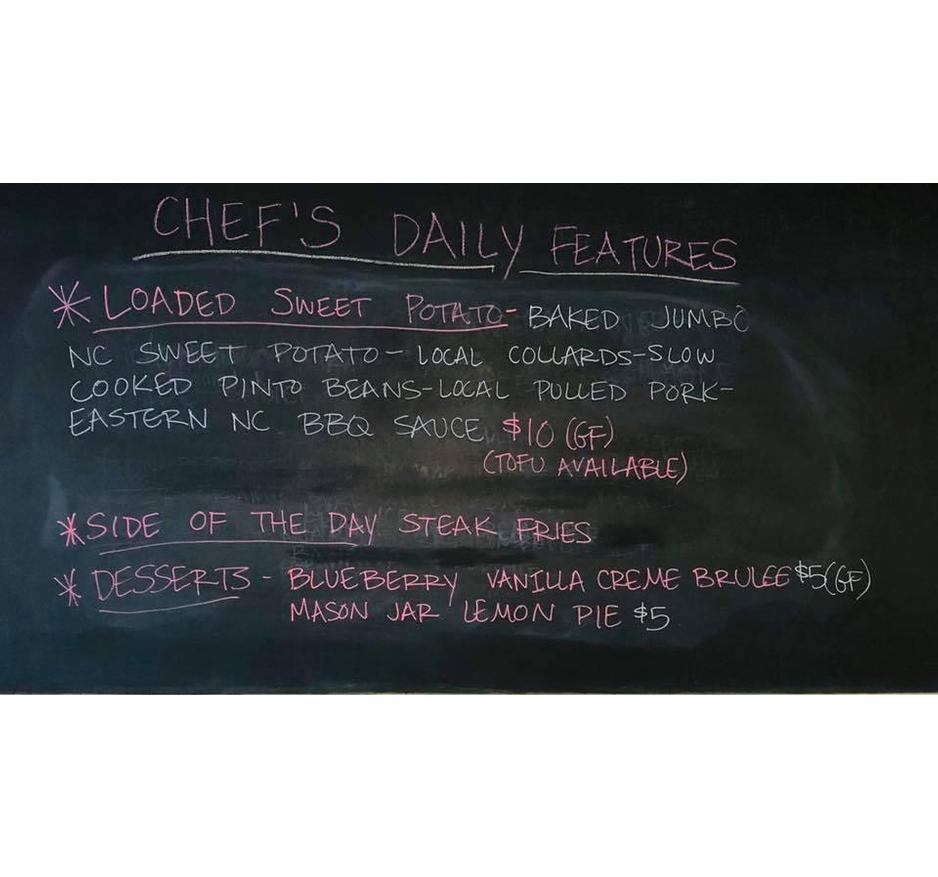 CHEF'S DAILY FEATURES
* LOADED SWEET POTATO - BAKED JUMBO
NC SWEET POTATO - LOCAL COLLARDS - SLOW
COOKED PINTO BEANS - LOCAL PULLED PORK -
EASTERN NC BBQ SAUCE $10 (GF)
(TOFU AVAILABLE)
* SIDE OF THE DAY STEAK FRIES
* DESSERTS - BLUEBERRY VANILLA CREME BRULEE $5 (GF)
MASON JAR LEMON PIE $5